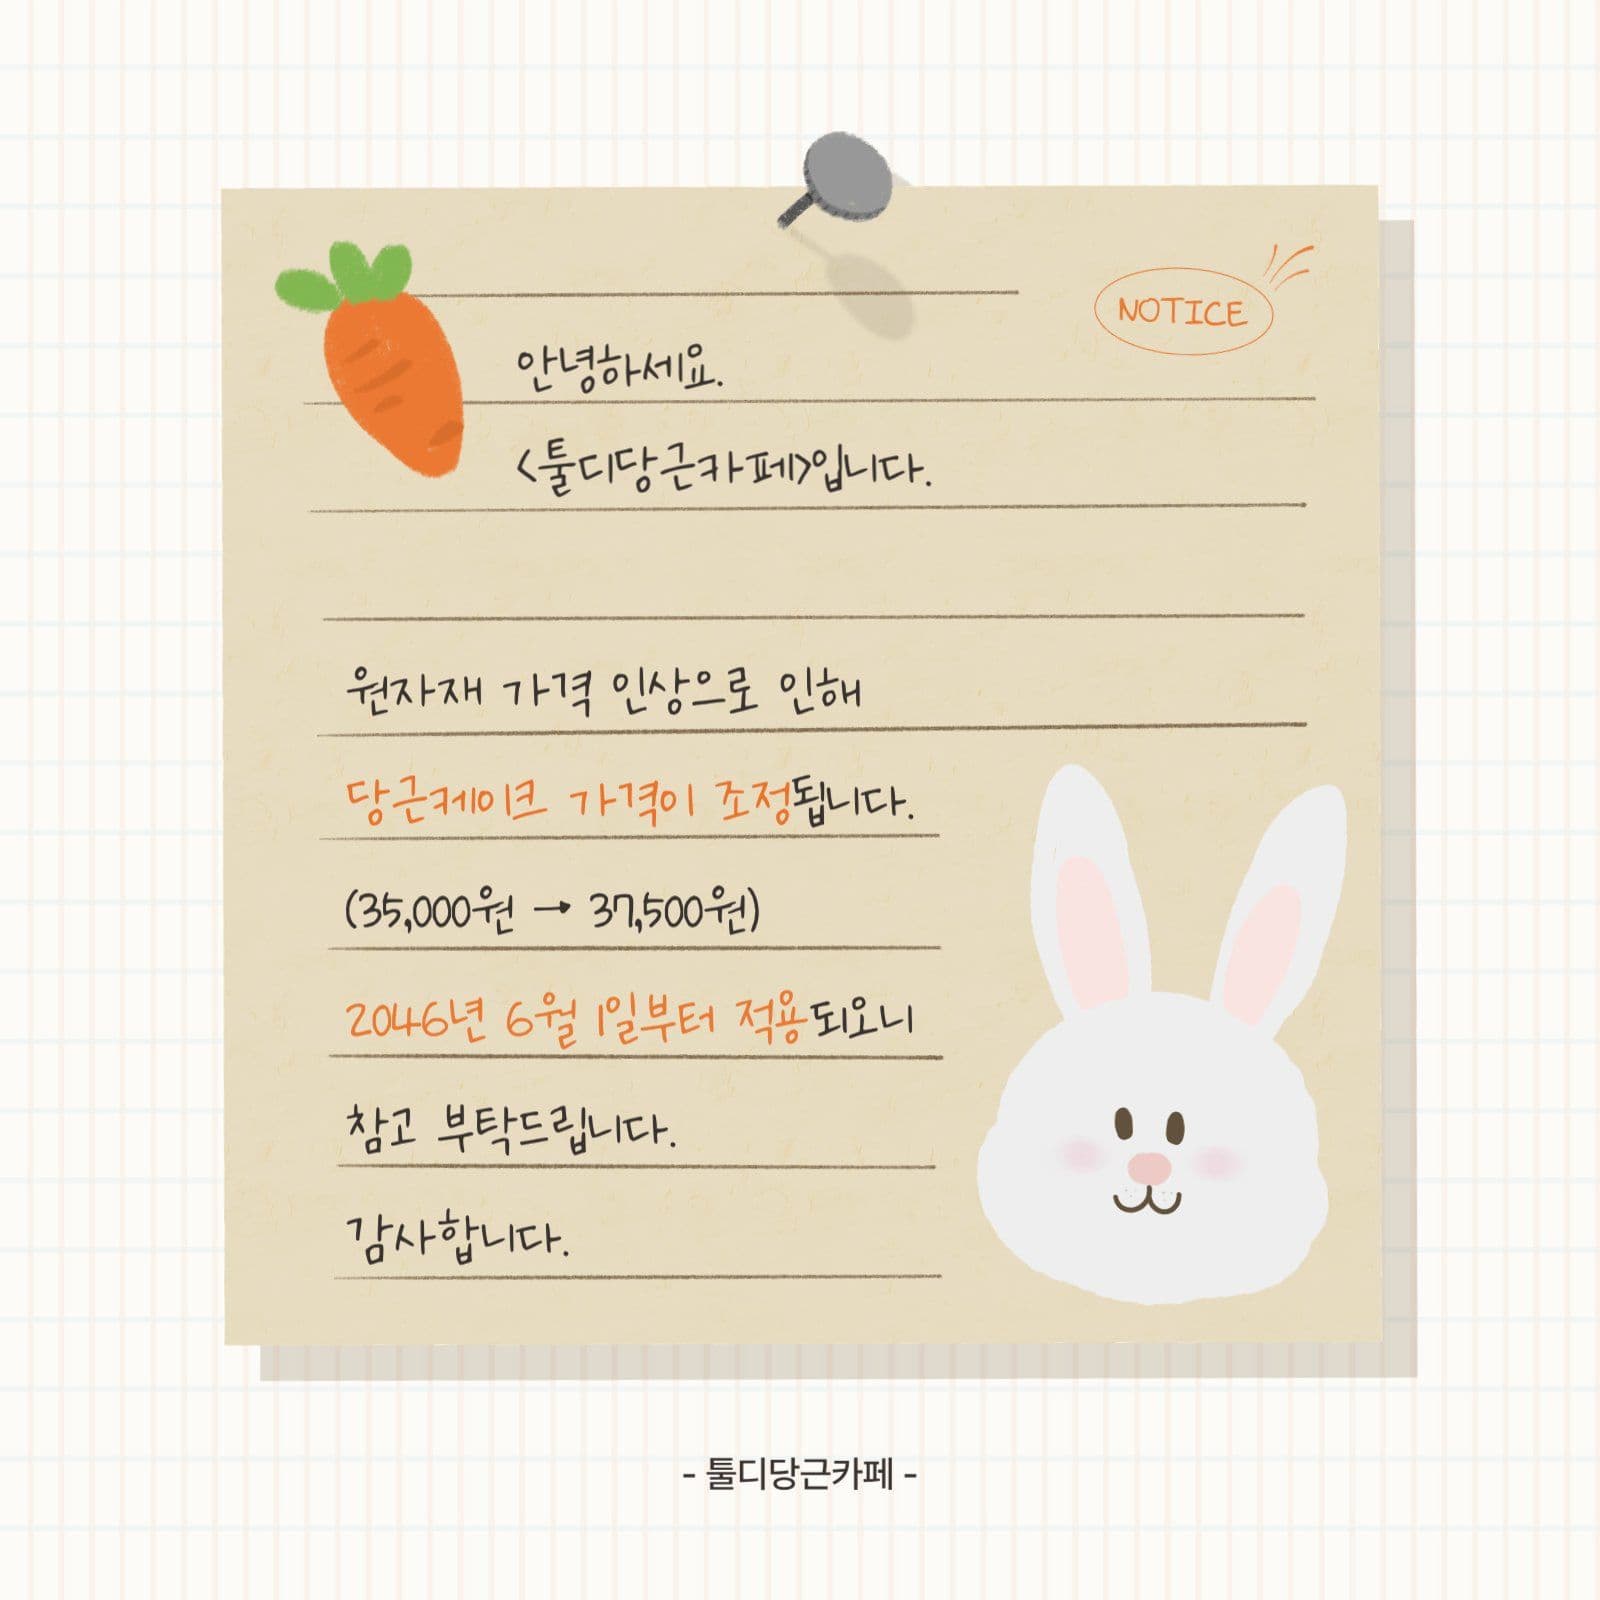 NOTICE
안녕하세요.
<툴디당근카페>입니다.
원자재 가격 인상으로 인해
당근케이크 가격이 조정됩니다.
(35,000원 → 37,500원)
2046년 6월 1일부터 적용되오니
참고 부탁드립니다.
감사합니다.
- 툴디당근카페 -